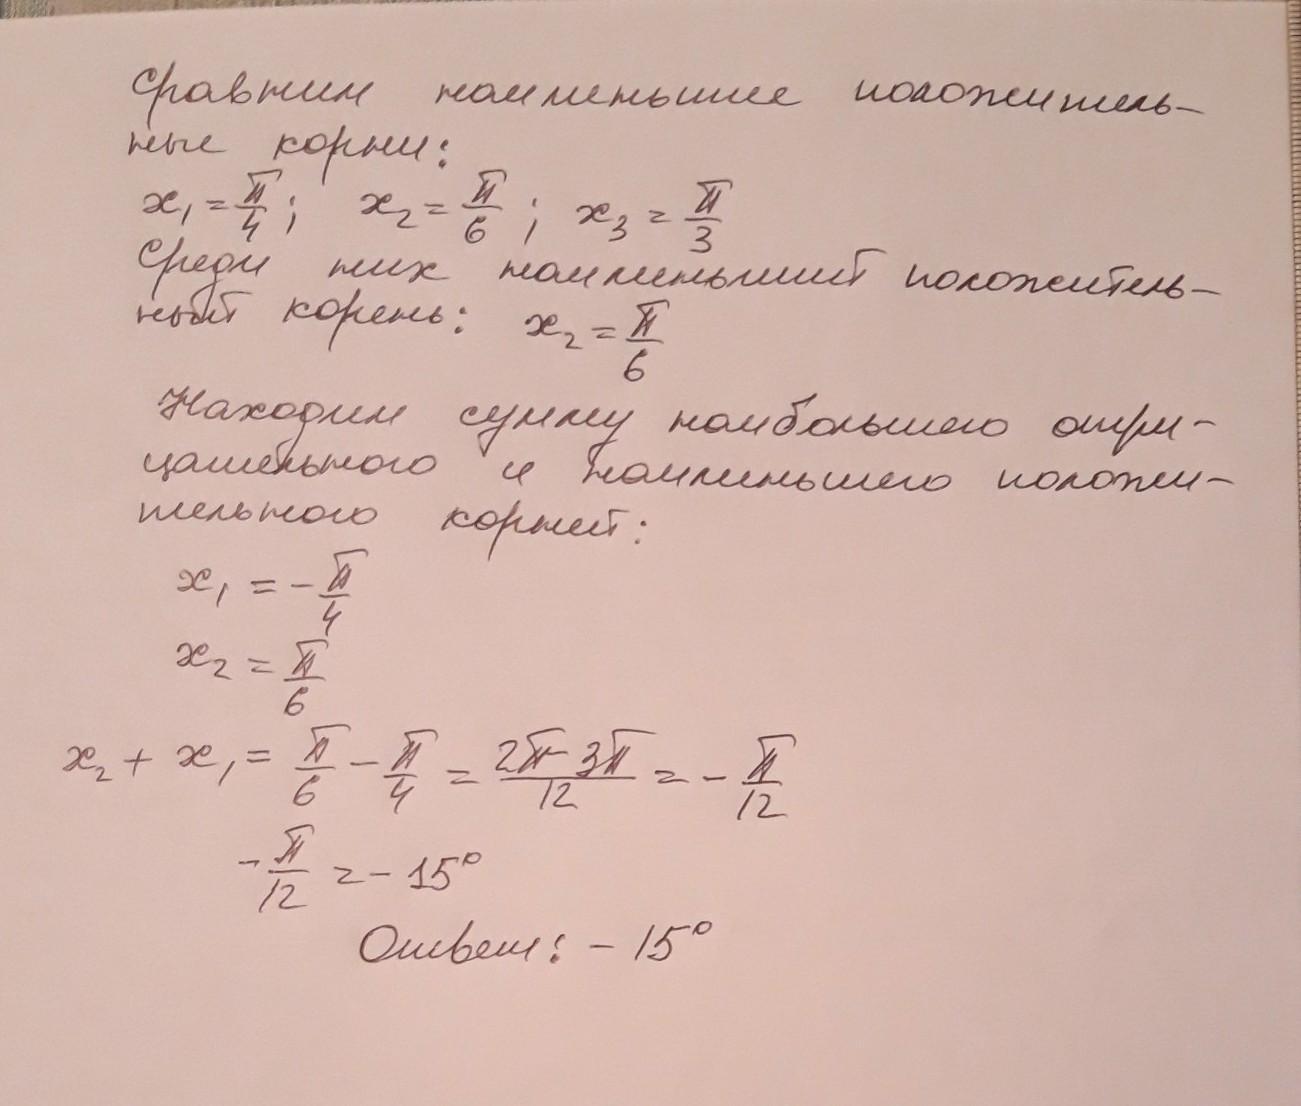 Сравним наименьшие положитель-
ные корни:
x₁ = π/4; x₂ = π/6; x₃ = π/3
Среди них наименьший положитель-
ный корень: x₂ = π/6
Находим сумму наибольшего отри-
цательного и наименьшего положи-
тельного корней:
x₁ = - π/4
x₂ = π/6
x₂ + x₁ = π/6 - π/4 = (2π - 3π)/12 = - π/12
- π/12 = - 15°
Ответ: - 15°